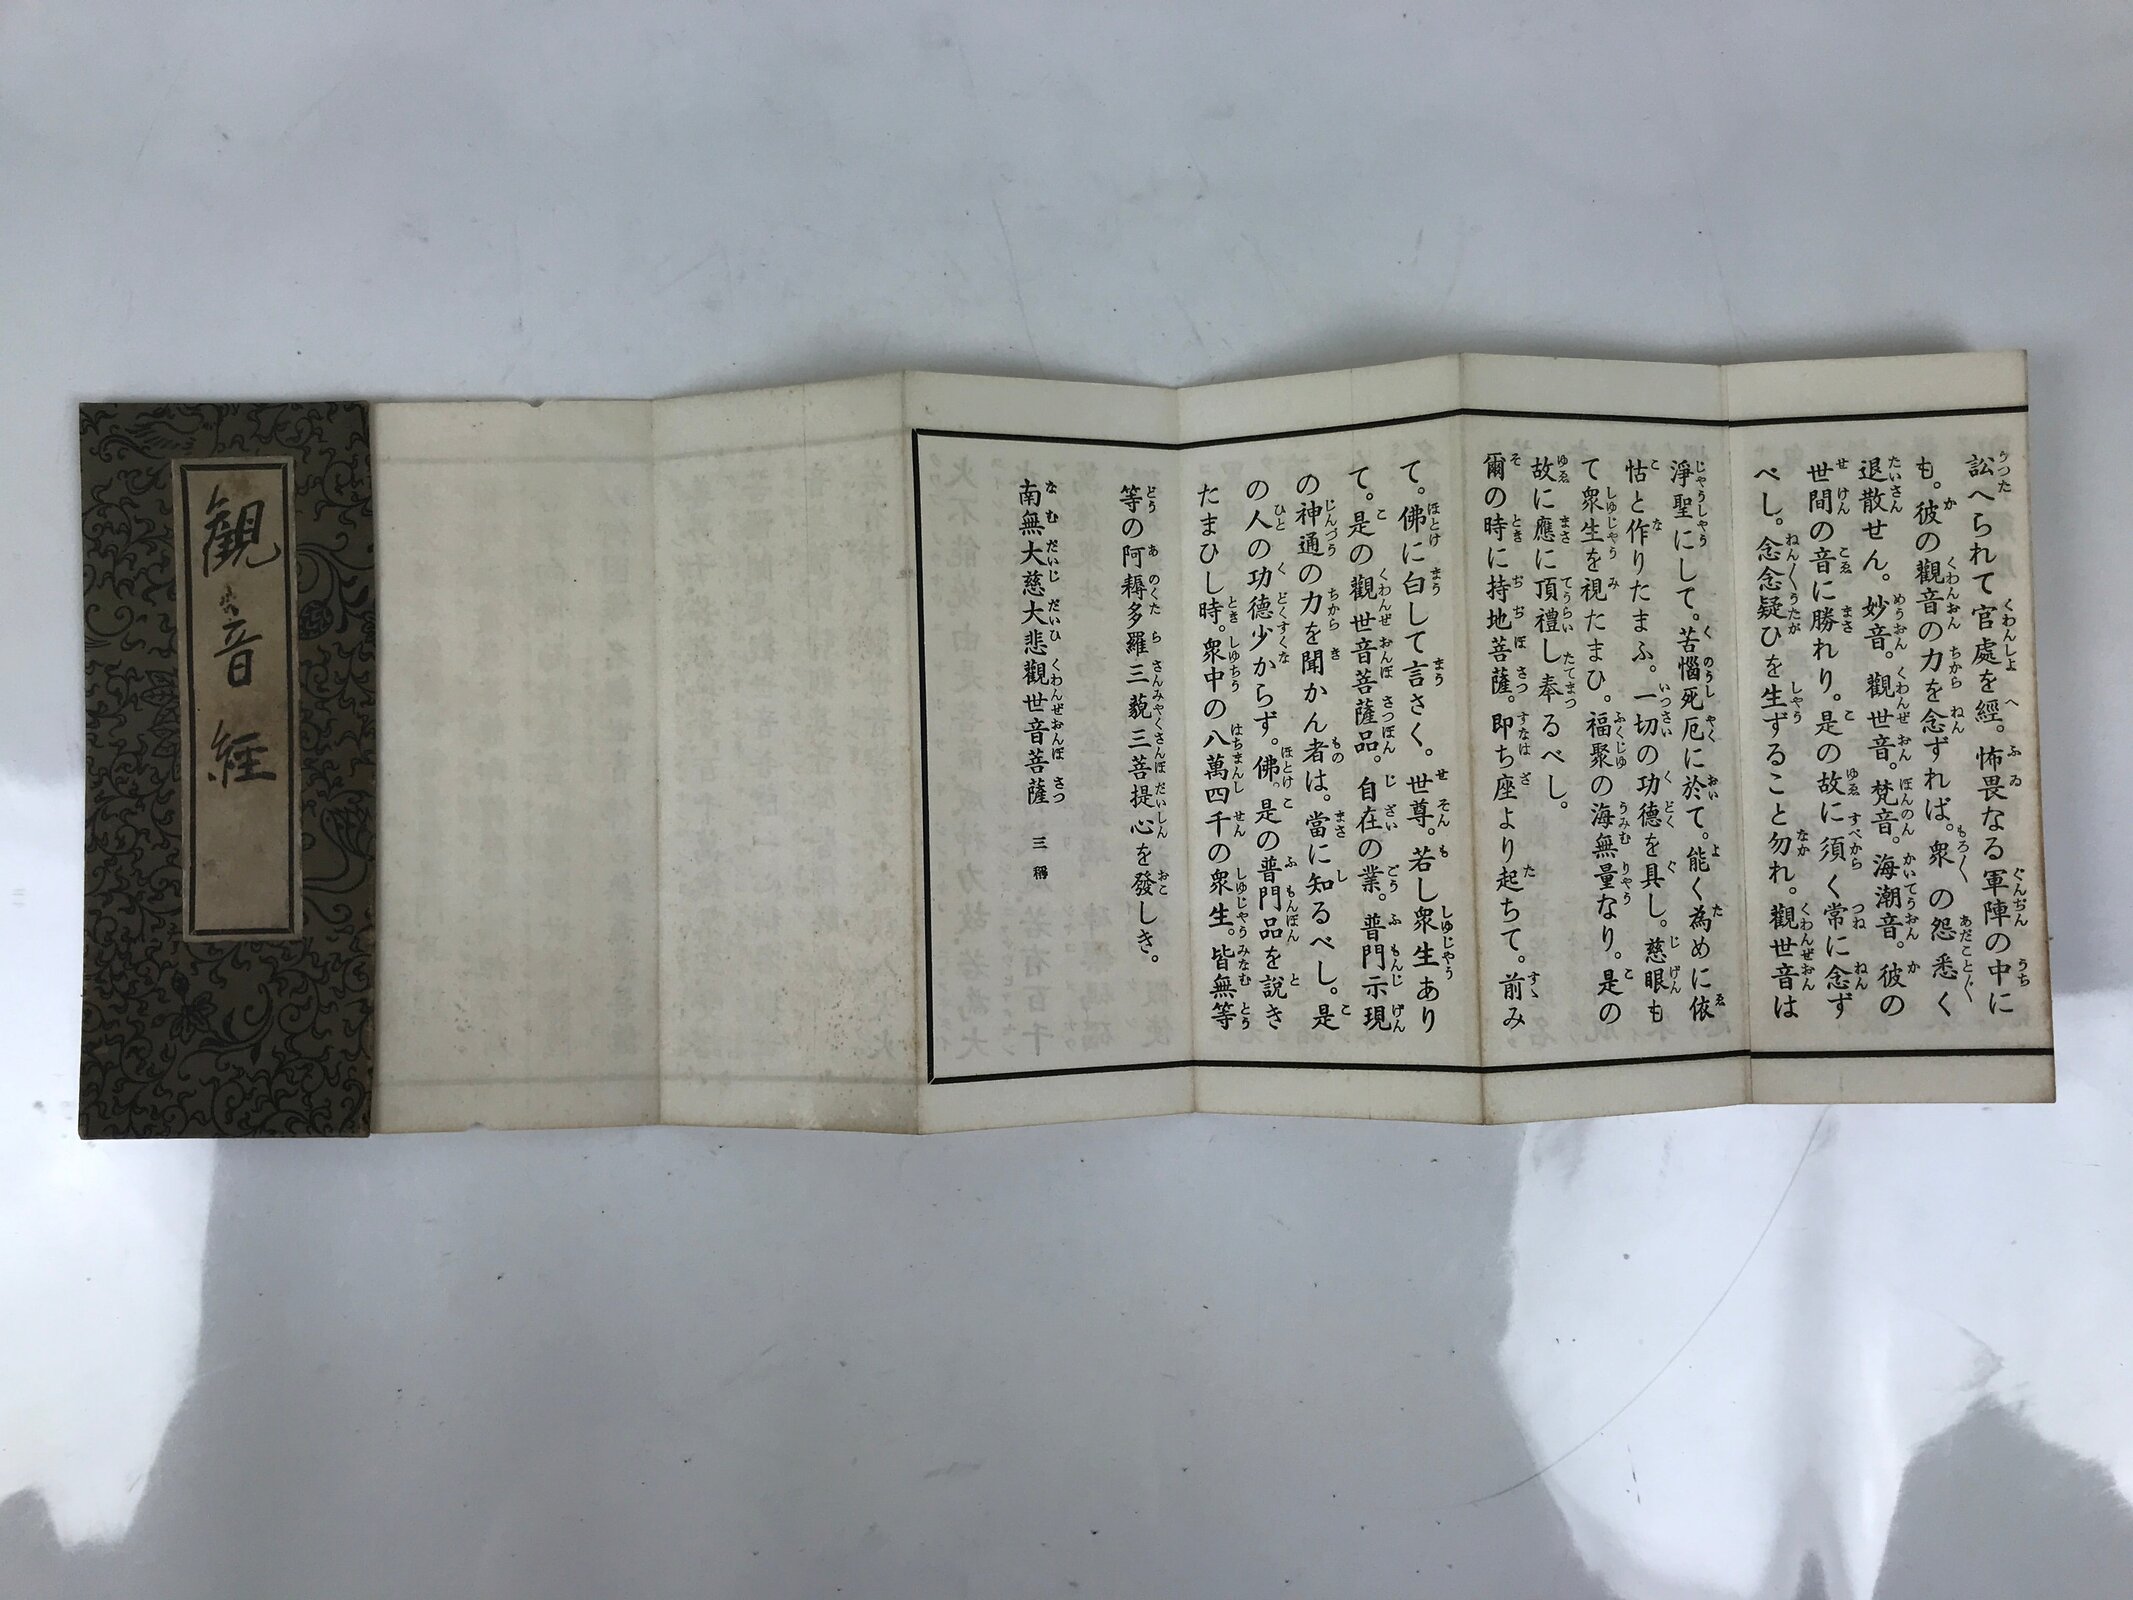 訟へられて官處を經。怖畏なる軍陣の中に
も。彼の觀音の力を念ずれば。衆の怨悉く
退散せん。妙音。觀世音。梵音。海潮音。彼の
世間の音に勝れり。是の故に須く常に念ず
べし。念念疑ひを生ずること勿れ。觀世音は
淨聖にして。苦惱死厄に於て。能く為めに依
怙と作りたまふ。一切の功德を具し。慈眼も
て衆生を視たまひ。福聚の海無量なり。是の
故に應に頂禮し奉るべし。
爾の時に持地菩薩。即ち座より起ちて。前み
て。佛に白して言さく。世尊。若し衆生あり
て。是の觀世音菩薩品。自在の業。普門示現
の神通の力を聞かん者は。當に知るべし。是
の人の功德少からず。佛。是の普門品を說き
たまひし時。衆中の八萬四千の衆生。皆無等
等の阿耨多羅三藐三菩提心を發しき。
南無大慈大悲觀世音菩薩 三稱
觀音經